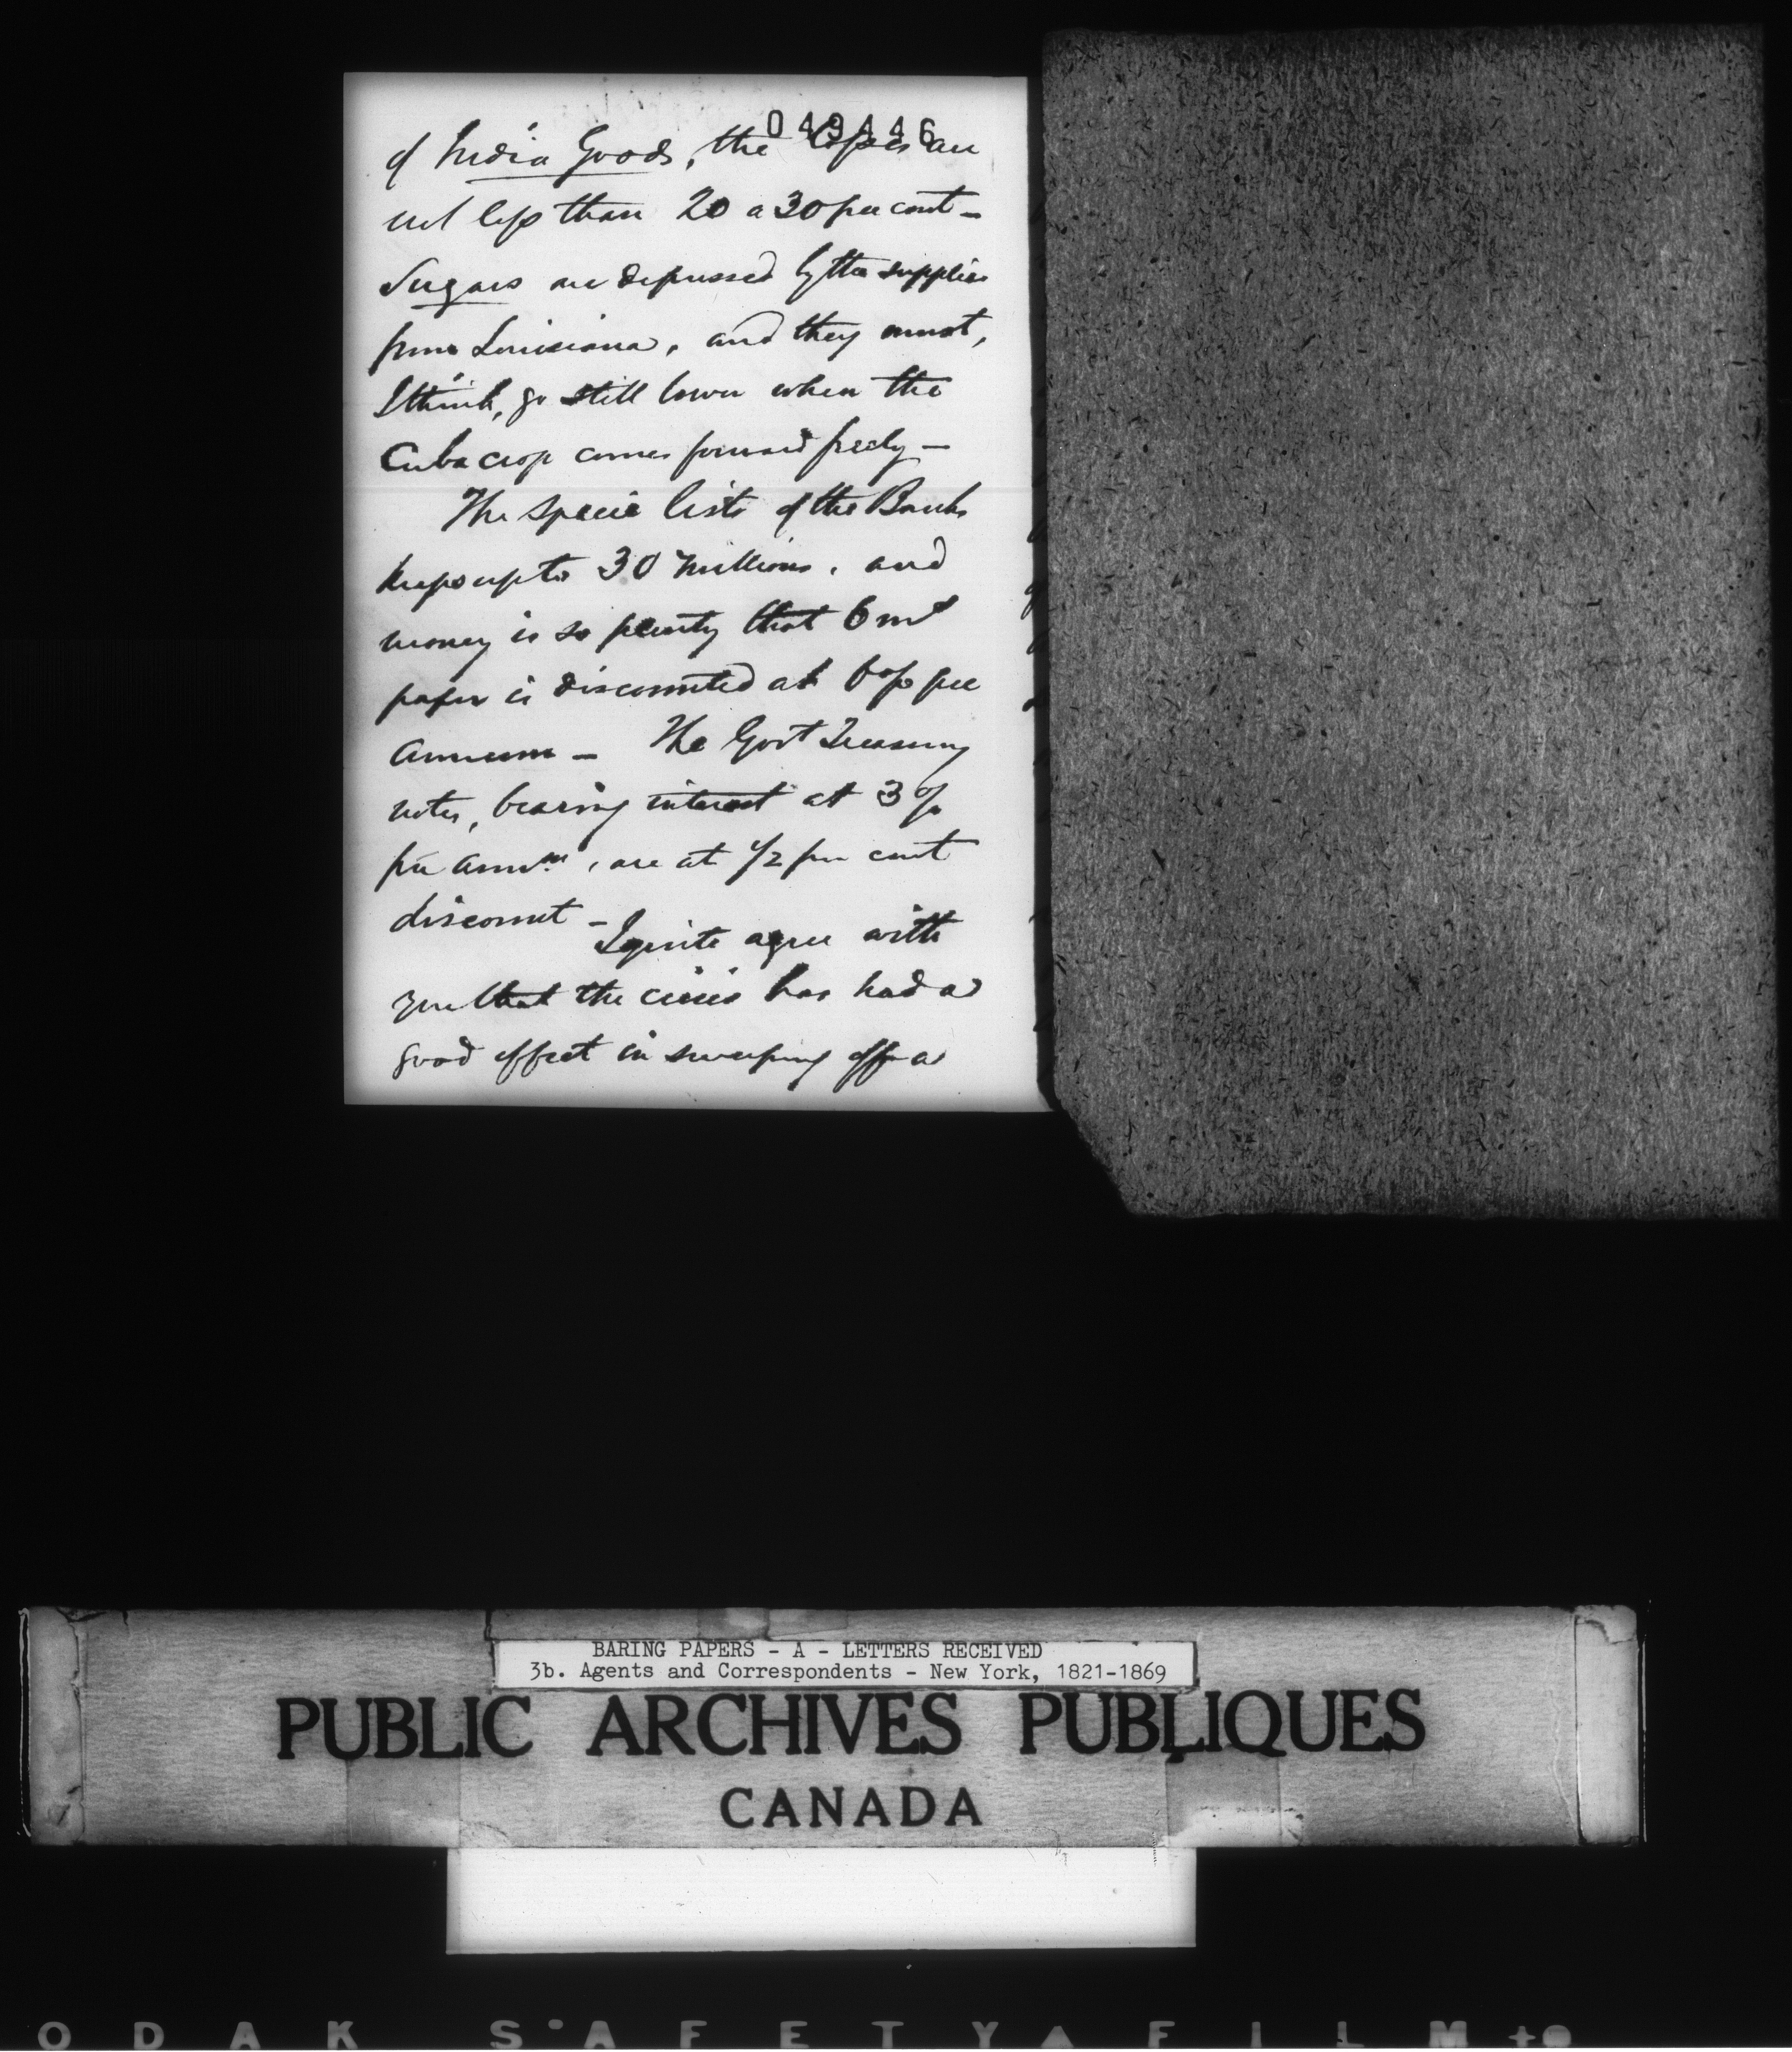 049446
of India Goods, the losses are
not less than 20 a 30 per cent –
Sugars are depressed by the supplies
from Louisiana, and they must,
I think, go still lower when the
Cuba crop comes forward freely –
The specie lists of the Banks
keeps up to 30 millions, and
money is so plenty that 6 mos
paper is discounted at 6 % per
annum – The Govt Treasury
notes, bearing interest at 3 %
per annm, are at 1/2 per cent
discount –
I quite agree with
you that the crisis has had a
good effect in sweeping off a
BARING PAPERS - A - LETTERS RECEIVED
3b. Agents and Correspondents - New York, 1821-1869
PUBLIC ARCHIVES PUBLIQUES
CANADA
ODAK SAFETY FILM